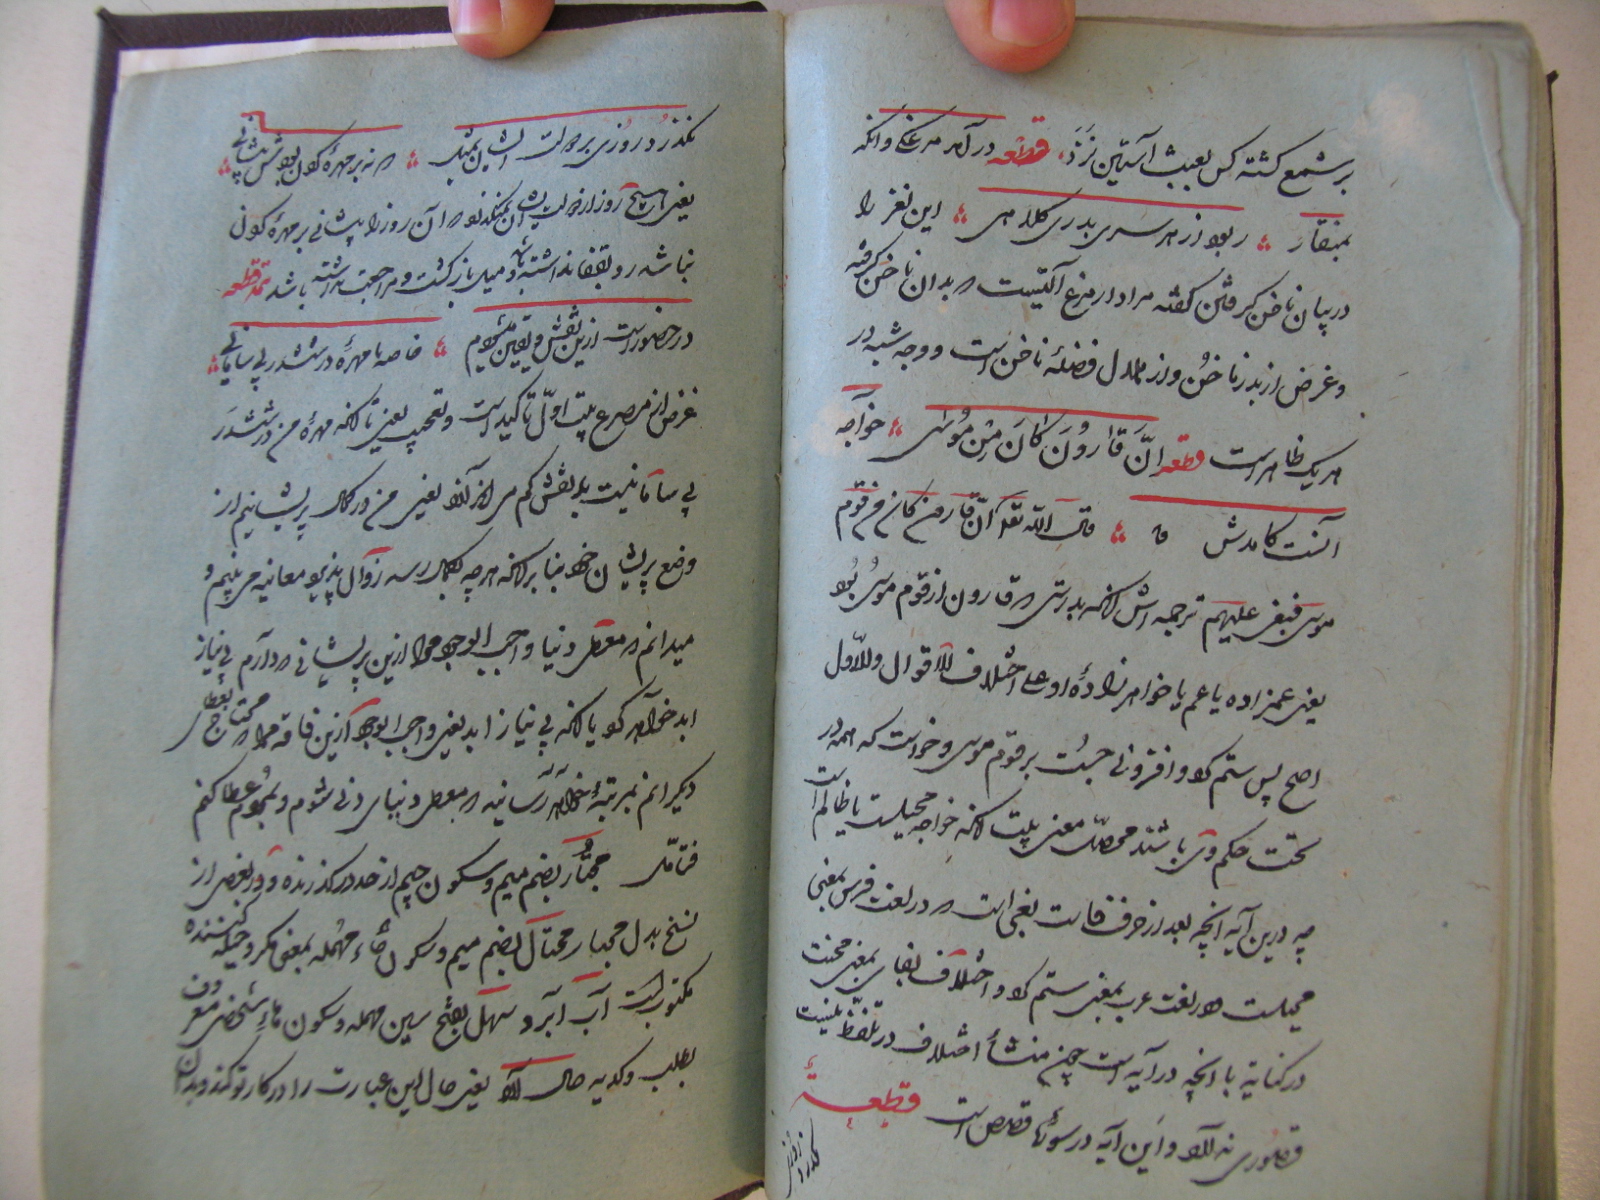 بر شمع کشته کس بعبث آستین نزد قطعه در آمد مرغکی وانکه
بمنقار ربود از هر سری بدری کلاهی این لغز را
در بیان ناخن گرفتن گفته مراد از مرغ آلتیست که بدان ناخن گرفته
و غرض از بدر ناخن و از هلال فضلهٔ ناخن است و وجه شبه در
هر یک ظاهر است قطعه انّ قارون کان من موسی خواجه
قال الله تعالی انّ قارون کان من قوم
موسی فبغی علیهم ترجمه اش آنکه بدرستی که قارون از قوم موسی بود
یعنی عمزاده یا عم یا خواهرزادهٔ او علی اختلاف الاقوال والاول
اصح پس ستم کرد و افزونی جست بر قوم موسی و خواست که همه در
تحت حکم وی باشند محصل معنی بیت آنکه خواجه بخیلست یا ظالم است
چه درین آیه انچه بعد از حرف فاست بغی است که در لغت فرس بمعنی
بخیلست و در لغت عرب بمعنی ستم کرد و اختلاف بمعنی
در کتابة با انچه در آیه است چین منشأ اختلاف در تلفظ نیست
قصوری نه الا و این آیه در سورهٔ قصص است قطعهٔ
نگذرد روزی
نگذرد روزی بر دولت ایشان بمثل که نه بر چهرهٔ کون بودش پیشانی
یعنی هیچ روز از دولت ایشان نمیگذرد که آن روز را پیشانی بر چهرهٔ کون
نباشد رو بقفا نداشته و میل بازگشت و مراجعت نداشته باشد قطعه
در حضور است ازین نقش و یقین میدانم خاصه با مهرهٔ در ششدر بی سامانی
غرض از مصرع بیت اوّل تاکید است و تعجب یعنی تا آنکه مهرهٔ من در ششدر
بی سامانیست نقش کم من الا یعنی من در کمال پریشانیم از
وضع پریشان خود بنا بر آنکه هر چه بکمال رسد زوال پذیرد معاینه می بینم و
میدانم که معطی دنیا واجب الوجود مرا ازین پریشانی در آرم بی نیاز
ابد خواهد کرد یا آنکه بی نیاز ابد یعنی واجب الوجود ازین فاقه مرا که محتاج بعطای
دیگرانم بمرتبهٔ خواهد رسانید که معطی دنیای دنی شوم و بمردم عطا کنم
فتأمّل بضم میم و سکون جیم از حد در گذرنده و در بعضی از
نسخ بدل محتال بضم میم و سکون حاء مهمله بمعنی مکر و حیله کننده
مکتوبست آب آبرو سهل بفتح سین مهمله و سکون هاء شخصی معروف
بطلب و کدیه حال الا یعنی حال این عبارت را در کار تو کند و بدان